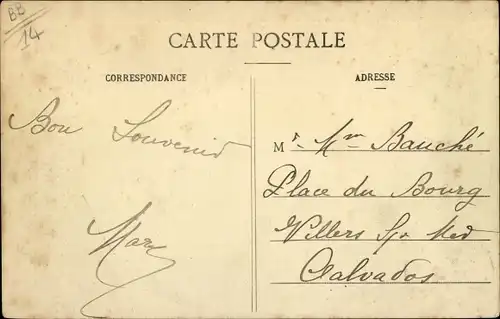 BB
14
CARTE POSTALE
CORRESPONDANCE
ADRESSE
Bon Souvenir
Mr. Mme Bauché
Place du Bourg
Villers Sr Mer
Calvados